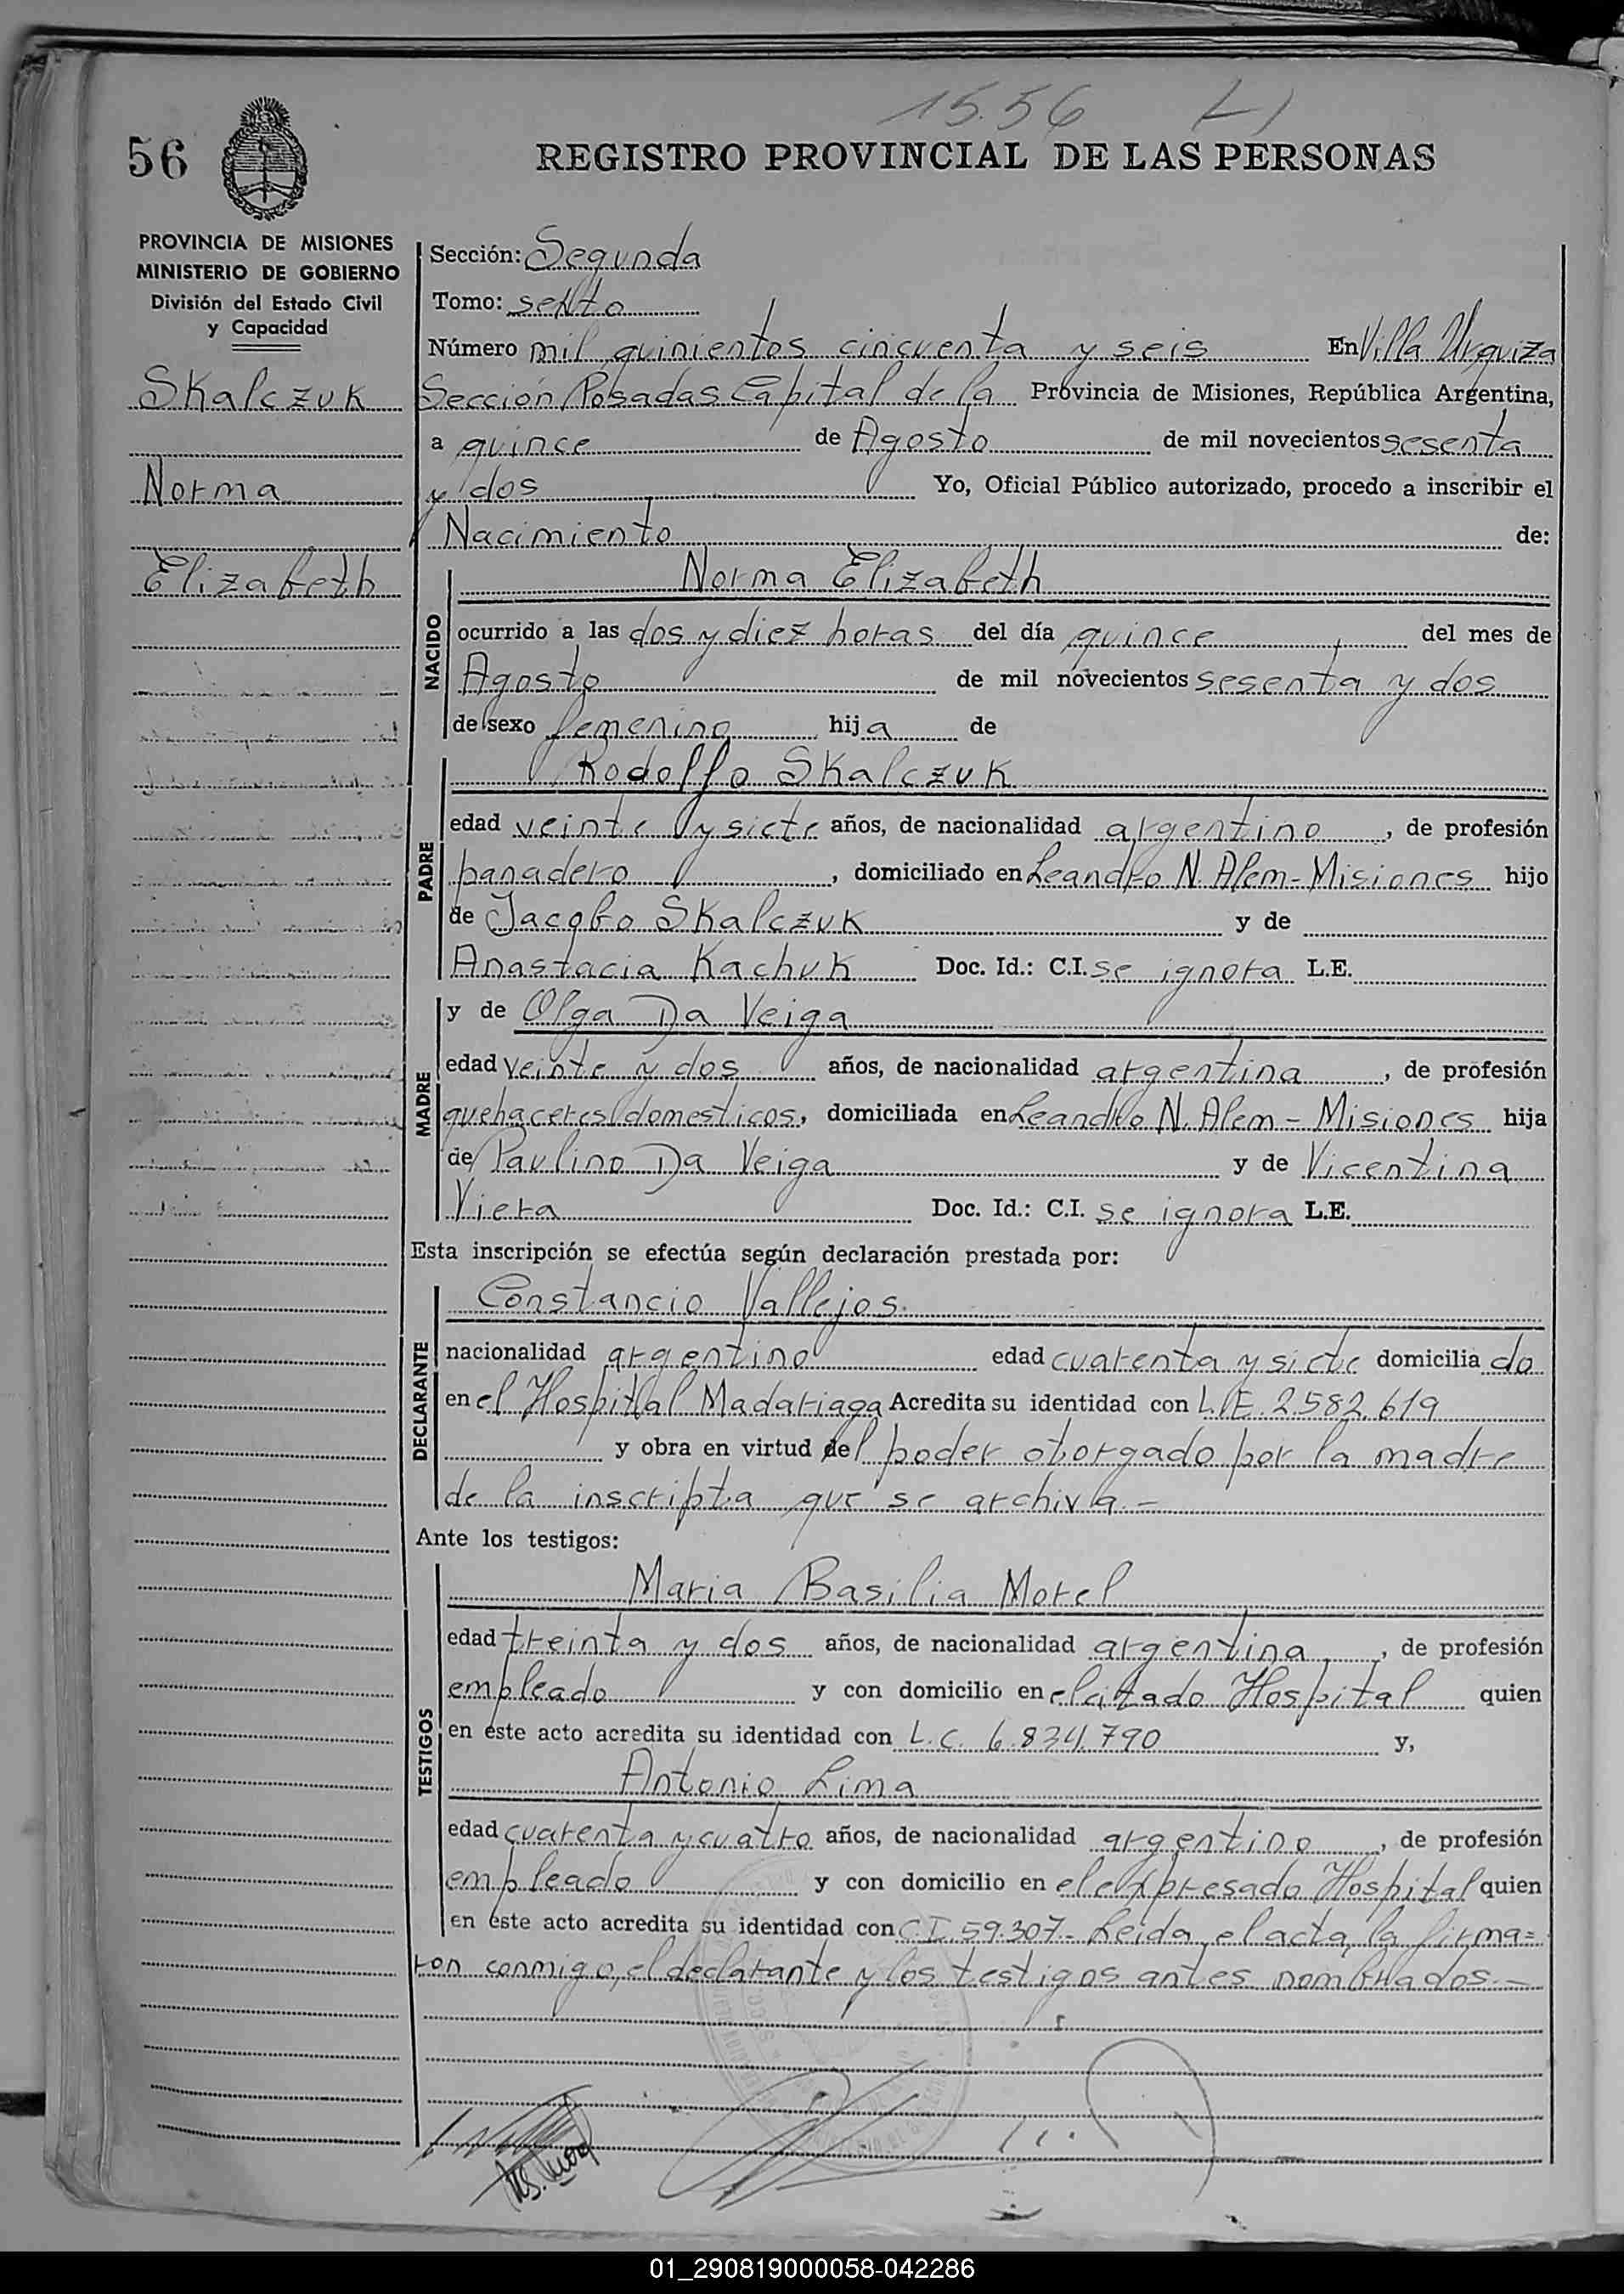 15.56
56
REGISTRO PROVINCIAL DE LAS PERSONAS
PROVINCIA DE MISIONES
MINISTERIO DE GOBIERNO
División del Estado Civil
y Capacidad
Skalczuk
Norma
Elizabeth
Sección: Segunda
Tomo: sexto
Número mil quinientos cincuenta y seis En Villa Urquiza
Sección Posadas Capital de la Provincia de Misiones, República Argentina,
a quince de Agosto de mil novecientos sesenta
y dos Yo, Oficial Público autorizado, procedo a inscribir el
Nacimiento de:
NACIDO
Norma Elizabeth
ocurrido a las dos y diez horas del día quince del mes de
Agosto de mil novecientos sesenta y dos
de sexo femenino hija de
PADRE
Rodolfo Skalczuk
edad veinte y siete años, de nacionalidad argentino, de profesión
panadero, domiciliado en Leandro N. Alem - Misiones hijo
de Jacobo Skalczuk y de
Anastacia Kachuk Doc. Id.: C.I. se ignora L.E.
MADRE
y de Olga Da Veiga
edad veinte y dos años, de nacionalidad argentina, de profesión
quehaceres domesticos, domiciliada en Leandro N. Alem - Misiones hija
de Paulino Da Veiga y de Vicentina
Viera Doc. Id.: C.I. se ignora L.E.
Esta inscripción se efectúa según declaración prestada por:
DECLARANTE
Constancio Vallejos
nacionalidad argentino edad cuarenta y siete domiciliado
en el Hospital Madariaga Acredita su identidad con L.E. 2.582.619
y obra en virtud del poder otorgado por la madre
de la inscripta que se archiva.-
Ante los testigos:
TESTIGOS
Maria Basilia Morel
edad treinta y dos años, de nacionalidad argentina, de profesión
empleado y con domicilio en el citado Hospital quien
en este acto acredita su identidad con L.C. 6.834.790 y,
Antonio Lima
edad cuarenta y cuatro años, de nacionalidad argentino, de profesión
empleado y con domicilio en el expresado Hospital quien
en este acto acredita su identidad con C.I. 59.307.- Leida el acta, la firma=
ron conmigo, el declarante y los testigos antes nombrados.-
01_290819000058-042286